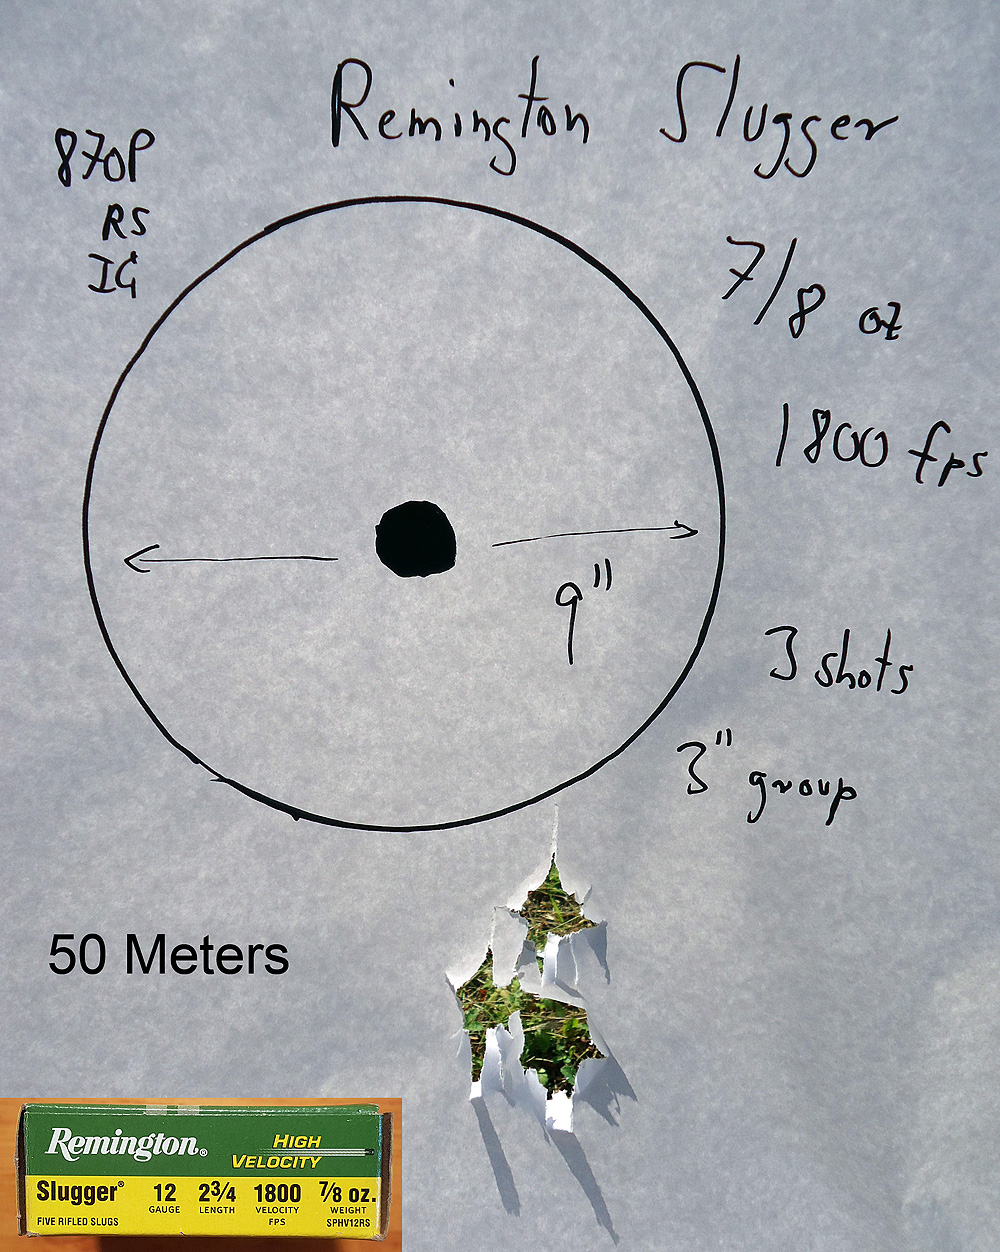 Remington Slugger
870P
RS
IG
7/8 oz
1800 fps
9"
3 shots
3" group
50 Meters
Remington®
HIGH
VELOCITY
Slugger® 12 2¾ 1800 7/8 oz.
GAUGE LENGTH VELOCITY WEIGHT
FIVE RIFLED SLUGS FPS SPHV12RS